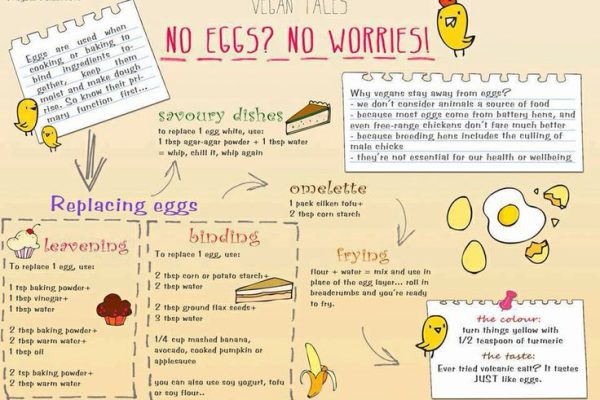 VEGAN TALES
NO EGGS? NO WORRIES!
Eggs are used when
cooking or baking to
bind ingredients to-
gether, keep them
moist and make dough
rise. So know their pri-
mary function first...
Why vegans stay away from eggs?
- we don't consider animals a source of food
- because most eggs come from battery hens, and
even free-range chickens don't fare much better
- because breeding hens includes the culling of
male chicks
- they're not essential for our health or wellbeing
savoury dishes
to replace 1 egg white, use:
1 tbsp agar-agar powder + 1 tbsp water
= whip, chill it, whip again
Replacing eggs
omelette
1 pack silken tofu+
2 tbsp corn starch
leavening
To replace 1 egg, use:
1 tsp baking powder+
1 tbsp vinegar+
1 tbsp water
2 tbsp baking powder+
2 tbsp warm water+
1 tbsp oil
2 tsp baking powder+
2 tbsp warm water
binding
To replace 1 egg, use:
2 tbsp corn or potato starch+
2 tbsp water
2 tbsp ground flax seeds+
3 tbsp water
1/4 cup mashed banana,
avocado, cooked pumpkin or
applesauce
you can also use soy yogurt, tofu
or soy flour..
frying
flour + water = mix and use in
place of the egg layer... roll in
breadcrumbs and you're ready
to fry.
the colour:
turn things yellow with
1/2 teaspoon of turmeric
the taste:
Ever tried volcanic salt? It tastes
JUST like eggs.